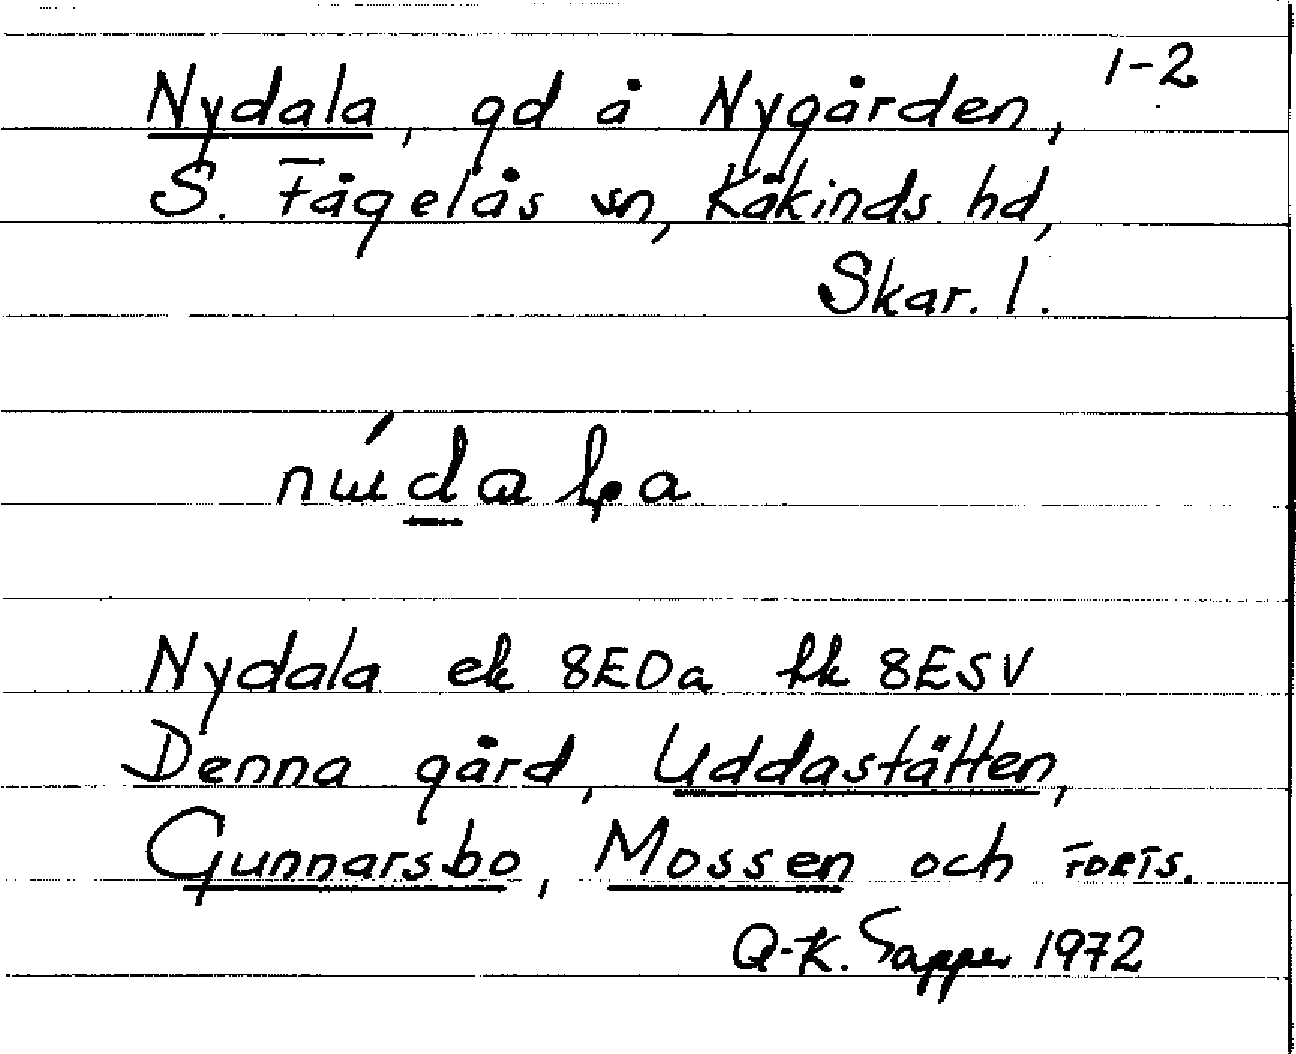 1-2
Nydala, gd å Nygården,
S. Fågelås sn, Kåkinds hd,
Skar. l.
Nydala ek 8E0a hk 8E5V
Denna gård, Uddastätten,
Gunnarsbo, Mossen och FORTS.
Q-K. Sapper 1972